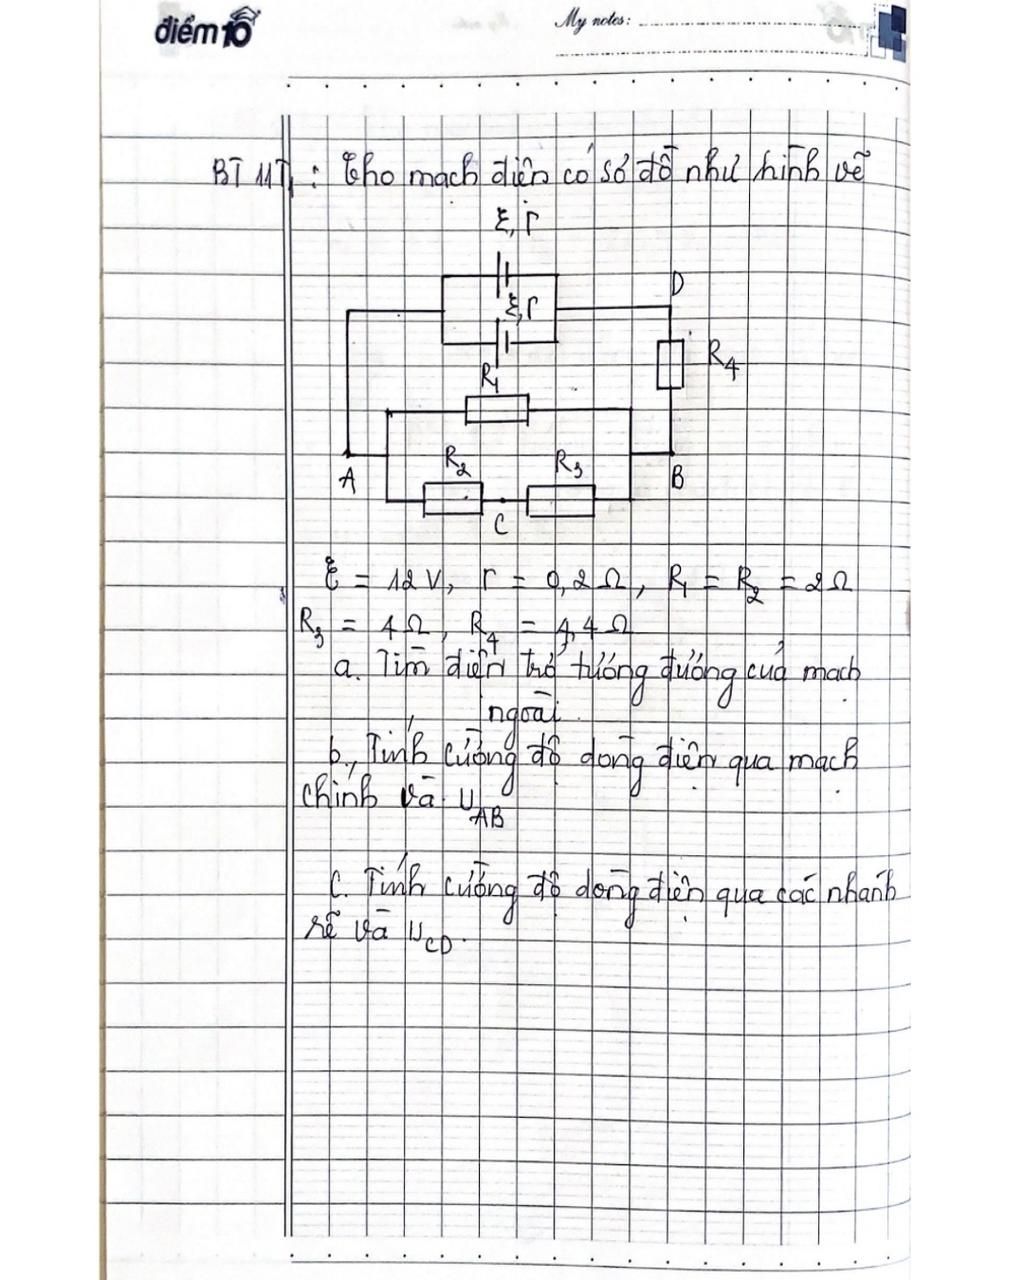 điểm10
My notes:
BT 11T1: Cho mạch điện có sơ đồ như hình vẽ
ξ, r
D
ξ, r
R4
R1
R2
R3
A
B
C
ξ = 12 V, r = 0,2 Ω, R1 = R2 = 2 Ω
R3 = 4 Ω, R4 = 4,4 Ω
a. Tìm điện trở tương đương của mạch
ngoài.
b, Tính cường độ dòng điện qua mạch
chính và UAB
c. Tính cường độ dòng điện qua các nhánh
rẽ và UCD.